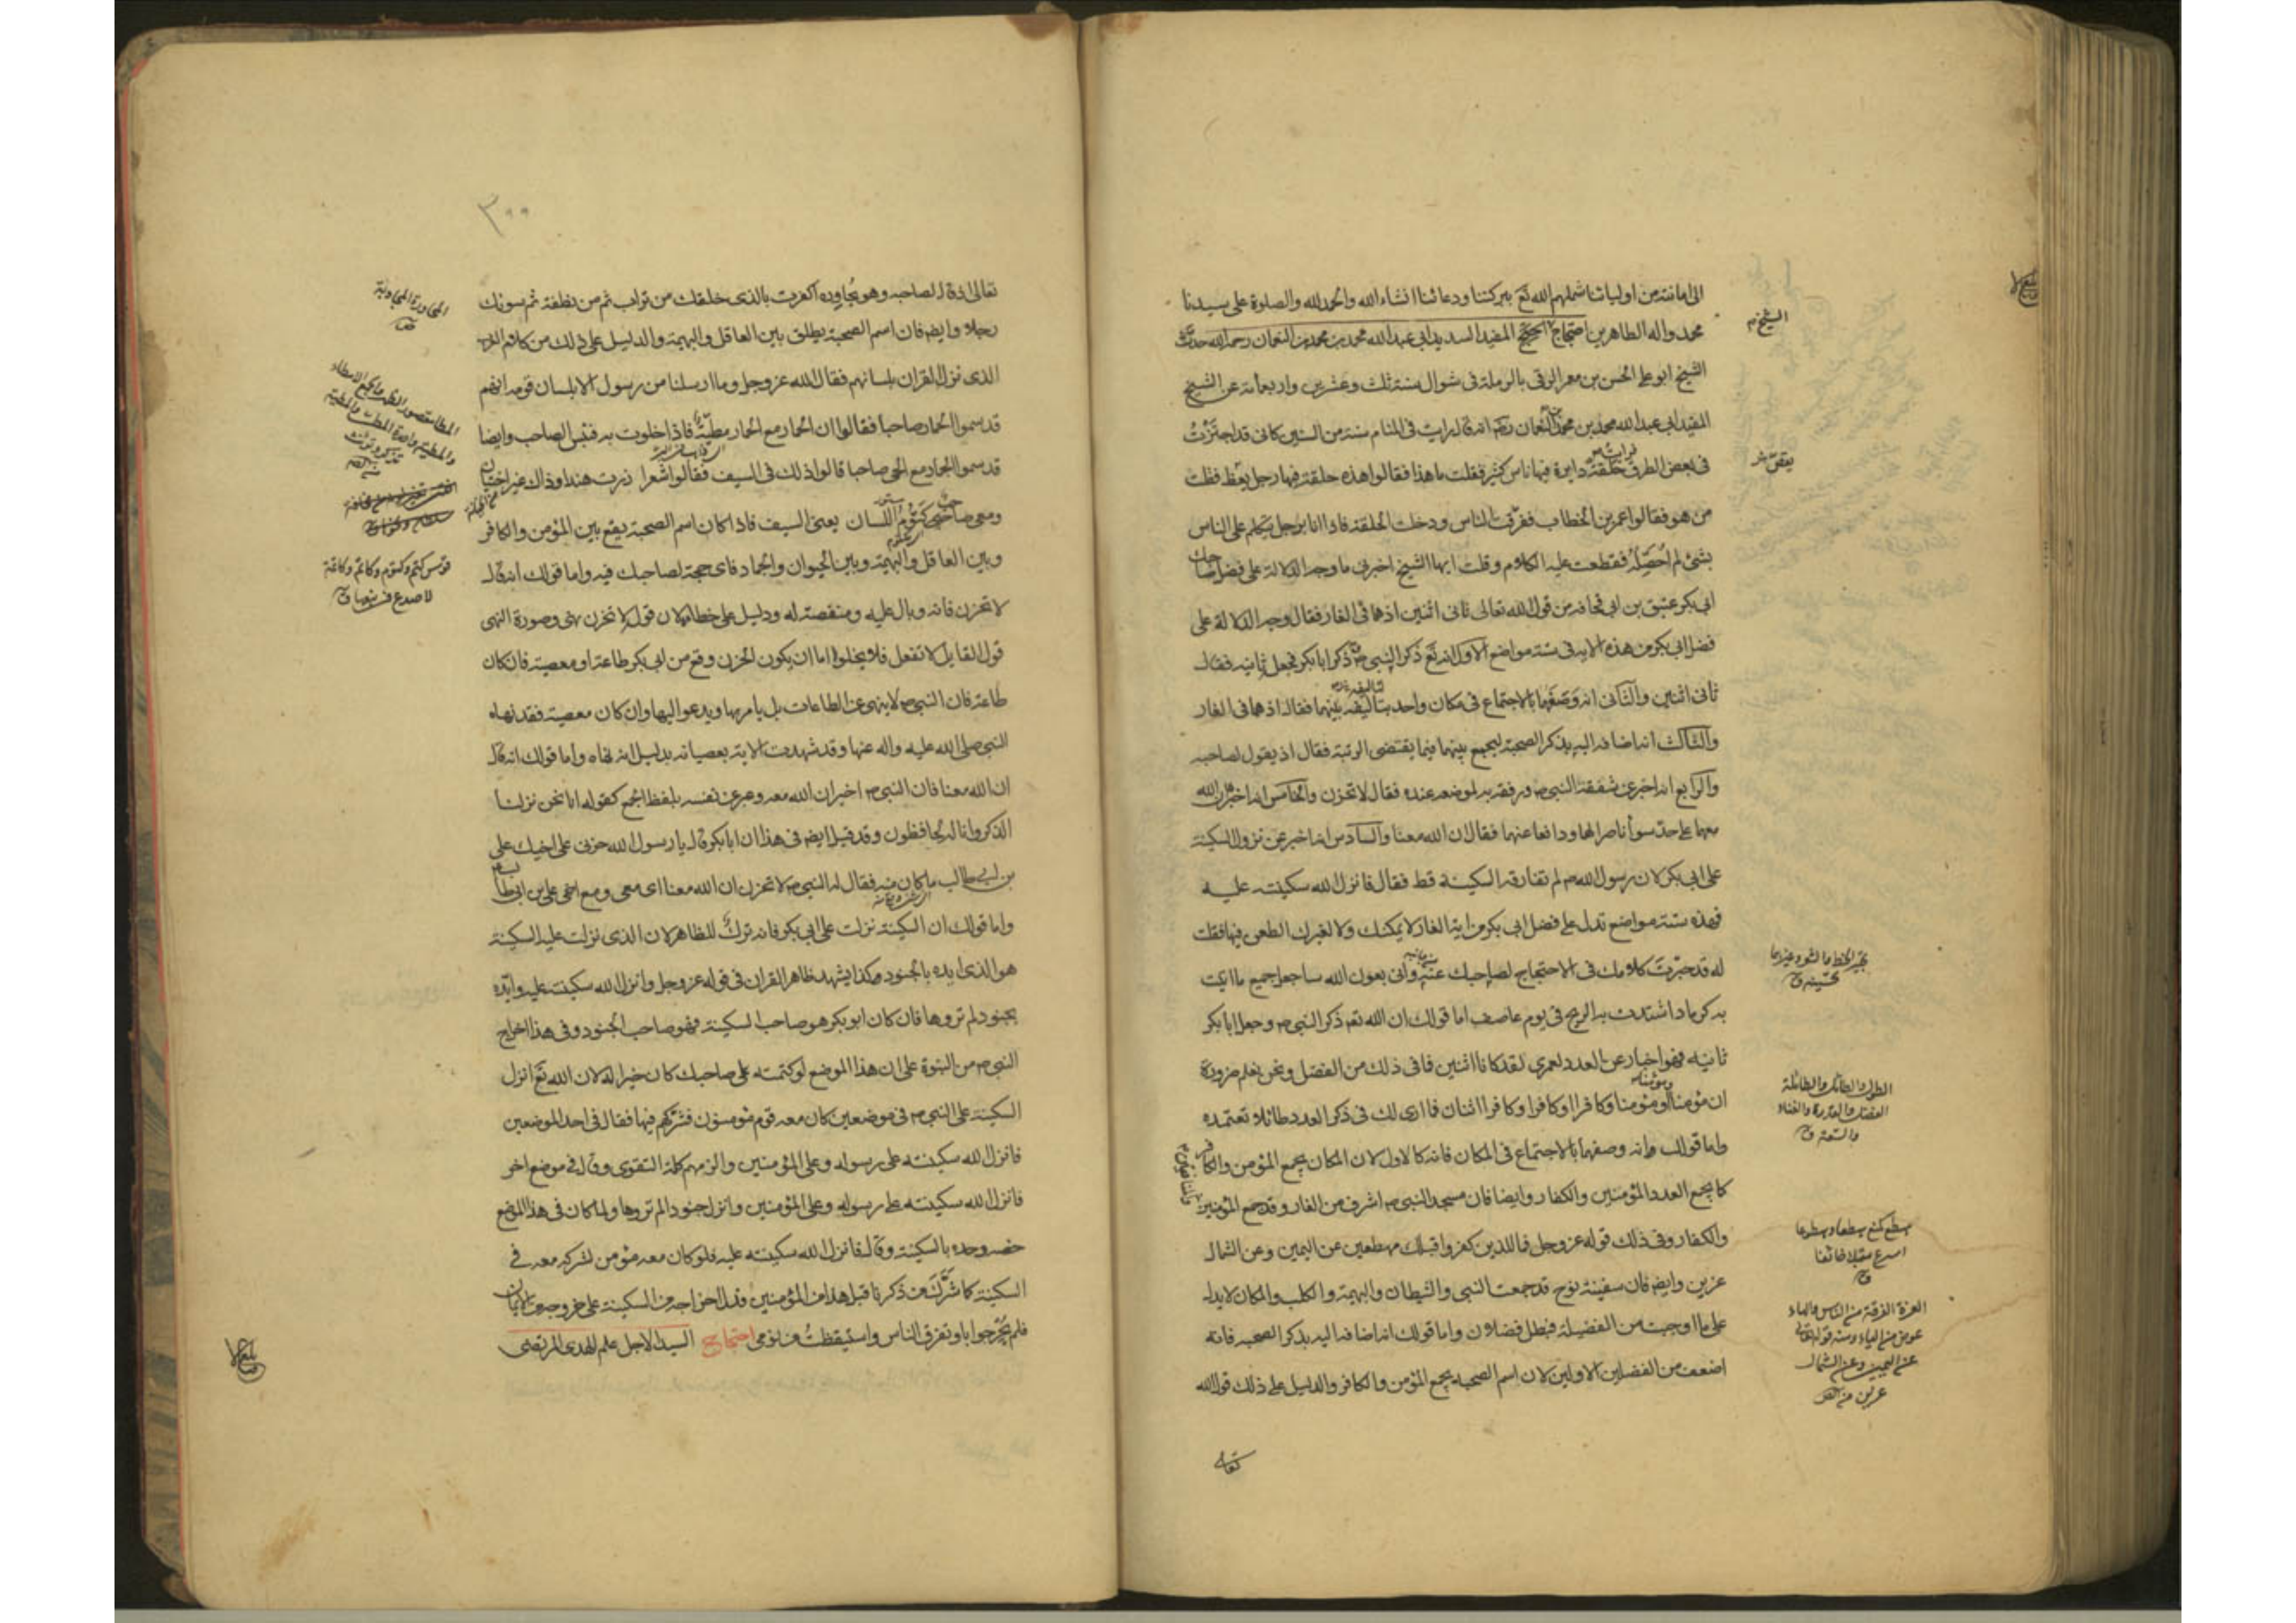 الى امانته من اوليائنا شملهم الله تع ببركتنا ودعائنا انشاء الله والحمد لله والصلوة على سيدنا
محمد واله الطاهرين احتجاج المفيد السديد ابى عبد الله محمد بن محمد بن النعمان رحمه الله حدث
الشيخ ابو على الحسن بن معمر الرقى بالرملة فى شوال سنة ثلث وعشرين واربعمائة عن الشيخ
المفيد ابى عبد الله محمد بن محمد بن النعمان انه قال رايت فى المنام سنة من السنين كانى قد اجتزت
فى بعض الطرق حلقة دايرة فيها ناس كثير فقلت ما هذا فقالوا هذه حلقة فيها رجل يعظ فقلت
من هو فقالوا عمر بن الخطاب ففرقت الناس ودخلت الحلقة فاذا انا برجل يتكلم على الناس
بشئ لم احصله فقطعت عليه الكلام وقلت ايها الشيخ اخبرنى ما وجه الدلالة على فضل صاحبك
ابى بكر عتيق بن ابى قحافه من قول الله تعالى ثانى اثنين اذ هما فى الغار فقال وجه الدلالة على
فضل ابى بكر من هذه الاية فى ستة مواضع الاول انه تع ذكر النبى ص وذكر ابا بكر فجعل ثانيه فقال
ثانى اثنين والثانى انه وصفهما بالاجتماع فى مكان واحد بتاليفه بينهما فقال اذ هما فى الغار
والثالث انه اضافه اليه بذكر الصحبة ليجمع بينهما فيما يقتضى الرتبة فقال اذ يقول لصاحبه
والرابع انه اخبر عن شفقة النبى ص ورفقه به لموضعه عنده فقال لا تحزن والخامس انه اخبر ان الله
معهما على حد سوأ ناصرا لهما ودافعا عنهما فقال ان الله معنا والسادس انه اخبر عن نزول السكينة
على ابى بكر لان رسول الله ص لم تفارقه السكينة قط فقال فانزل الله سكينته عليه
فهذه ستة مواضع تدل على فضل ابى بكر من اية الغار لا يمكنك ولا لغيرك الطعن فيها فقلت
له قد حبرت كلامك فى الاحتجاج لصاحبك عنه وانى بعون الله ساجعل جميع ما اتيت
به كرماد اشتدت به الريح فى يوم عاصف اما قولك ان الله تعه ذكر النبى ص وجعل ابا بكر
ثانيه فهو اخبار عن العدد لعمرى لقد كانا اثنين فما فى ذلك من الفضل ونحن نعلم ضرورة
ان مؤمنا ومؤمنا وكافرا او كافرا وكافرا اثنان فما ارى لك فى ذكر العدد طائلا تعتمده
واما قولك وانه وصفهما بالاجتماع فى المكان فانه كالاول لان المكان يجمع المؤمن والكافر
كما يجمع العدد المؤمنين والكفار وايضا فان مسجد النبى ص اشرف من الغار وقد جمع المؤمنين
والكفار وفى ذلك قوله عز وجل فما للذين كفروا قبلك مهطعين عن اليمين وعن الشمال
عزين وايضه فان سفينة نوح قد جمعت النبى والشيطان والبهيمة والكلب والمكان لا يدل
على ما اوجبت من الفضيلة فبطل فضلان واما قولك انه اضافه اليه بذكر الصحبه فانه
اضعف من الفضلين الاولين لان اسم الصحبه يجمع المؤمن والكافر والدليل على ذلك قول الله
تعالى
الطول والطائل والطائلة
الفضل والقدرة والغناء
والسعة ق
العزة الفرقة من الناس والهاء
عوض من الياء ومنه قوله تعالى
عن اليمين وعن الشمال
عزين
٣٠٠
تعالى اذ قال لصاحبه وهو يحاوره اكفرت بالذى خلقك من تراب ثم من نطفة ثم سوىك
رجلا وايضه فان اسم الصحبة يطلق بين العاقل والبهيمة والدليل على ذلك من كلام العرب
الذى نزل القران بلسانهم فقال الله عز وجل وما ارسلنا من رسول الا بلسان قومه انهم
قد سموا الحمار صاحبا فقالوا ان الحمار مع الحمار مطية فاذا خلوت به فبئس الصاحب وايضا
قد سموا الجماد مع الحى صاحبا قالوا ذلك فى السيف فقالوا شعرا زرت هندا وذاك غير اختيان
ومعى صاحب كتوم اللسان يعنى السيف فاذا كان اسم الصحبة يقع بين المؤمن والكافر
وبين العاقل والبهيمة وبين الحيوان والجماد فاى حجة لصاحبك فيه واما قولك انه قال
لا تحزن فانه وبال عليه ومنقصة له ودليل على خطائه لان قوله لا تحزن نهى وصورة النهى
قول القايل لا تفعل فلا يخلوا اما ان يكون الحزن وقع من ابى بكر طاعة او معصية فان كان
طاعة فان النبى ص لا ينهى عن الطاعات بل يامر بها ويدعو اليها وان كان معصية فقد نهاه
النبى صلى الله عليه واله عنها وقد شهدت الاية بعصيانه بدليل انه نهاه واما قولك انه قال
ان الله معنا فان النبى ص اخبر ان الله معه وعبر عن نفسه بلفظ الجمع كقوله انا نحن نزلنا
الذكر وانا له لحافظون وقد قيل ايضه فى هذا ان ابا بكر قال يا رسول الله حزنى على اخيك على
بن ابى طالب ما كان منه فقال له النبى ص لا تحزن ان الله معنا اى معى ومع اخى على بن ابى طالب
واما قولك ان السكينة نزلت على ابى بكر فانه ترك للظاهر لان الذى نزلت عليه السكينة
هو الذى ايده بالجنود وكذا يشهد ظاهر القران فى قوله عز وجل وانزل الله سكينته عليه وايده
بجنود لم تروها فان كان ابو بكر هو صاحب السكينة فهو صاحب الجنود وفى هذا اخراج
النبى ص من النبوة على ان هذا الموضع لو كتمته على صاحبك كان خيرا له لان الله تع انزل
السكينة على النبى ص فى موضعين كان معه قوم مؤمنون فشركهم فيها فقال فى احد الموضعين
فانزل الله سكينته على رسوله وعلى المؤمنين والزمهم كلمة التقوى وقال فى موضع اخر
فانزل الله سكينته على رسوله وعلى المؤمنين وانزل جنودا لم تروها ولما كان فى هذا الموضع
خصه وحده بالسكينة وقال فانزل الله سكينته عليه فلو كان معه مؤمن لشركه معه فى
السكينة كما شرك من ذكرنا قبل هذا من المؤمنين فدل اخراجه من السكينة على خروجه من الايمان
فلم يحر جوابا وتفرق الناس واستيقظت من نومى احتجاج السيد الاجل علم الهدى المرتضى
المحاورة المجاوبة